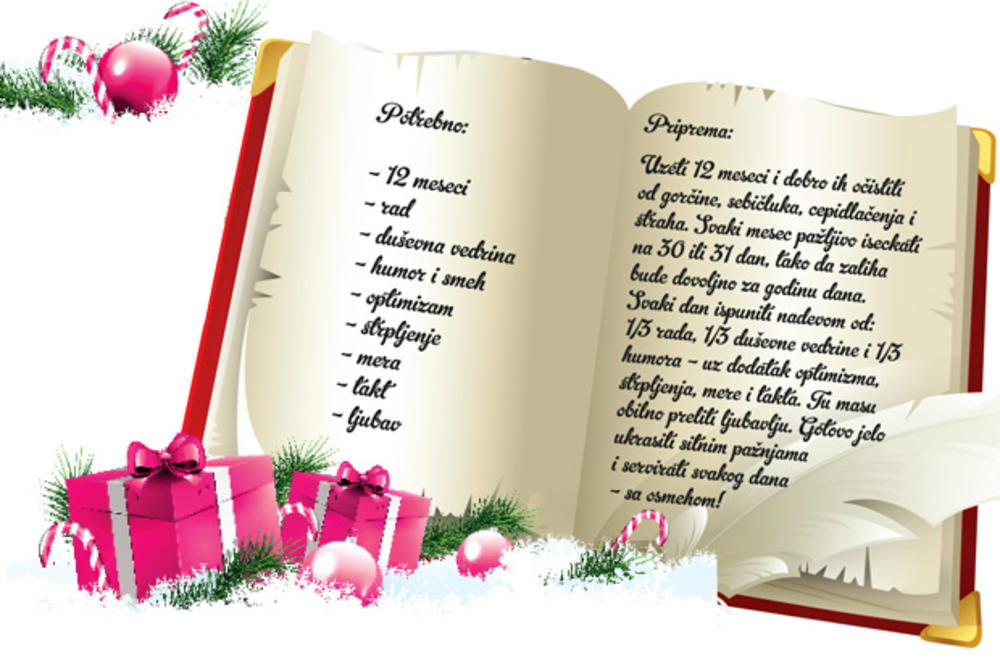 Potrebno:
- 12 meseci
- rad
- duševna vedrina
- humor i smeh
- optimizam
- strpljenje
- mera
- takt
- ljubav
Priprema:
Uzeti 12 meseci i dobro ih očistiti
od gorčine, sebičluka, cepidlačenja i
straha. Svaki mesec pažljivo iseckati
na 30 ili 31 dan, tako da zaliha
bude dovoljno za godinu dana.
Svaki dan ispuniti nadevom od:
1/3 rada, 1/3 duševne vedrine i 1/3
humora – uz dodatak optimizma,
strpljenja, mere i takta. Tu masu
obilno preliti ljubavlju. Gotovo jelo
ukrasiti sitnim pažnjama
i servirati svakog dana
- sa osmehom!